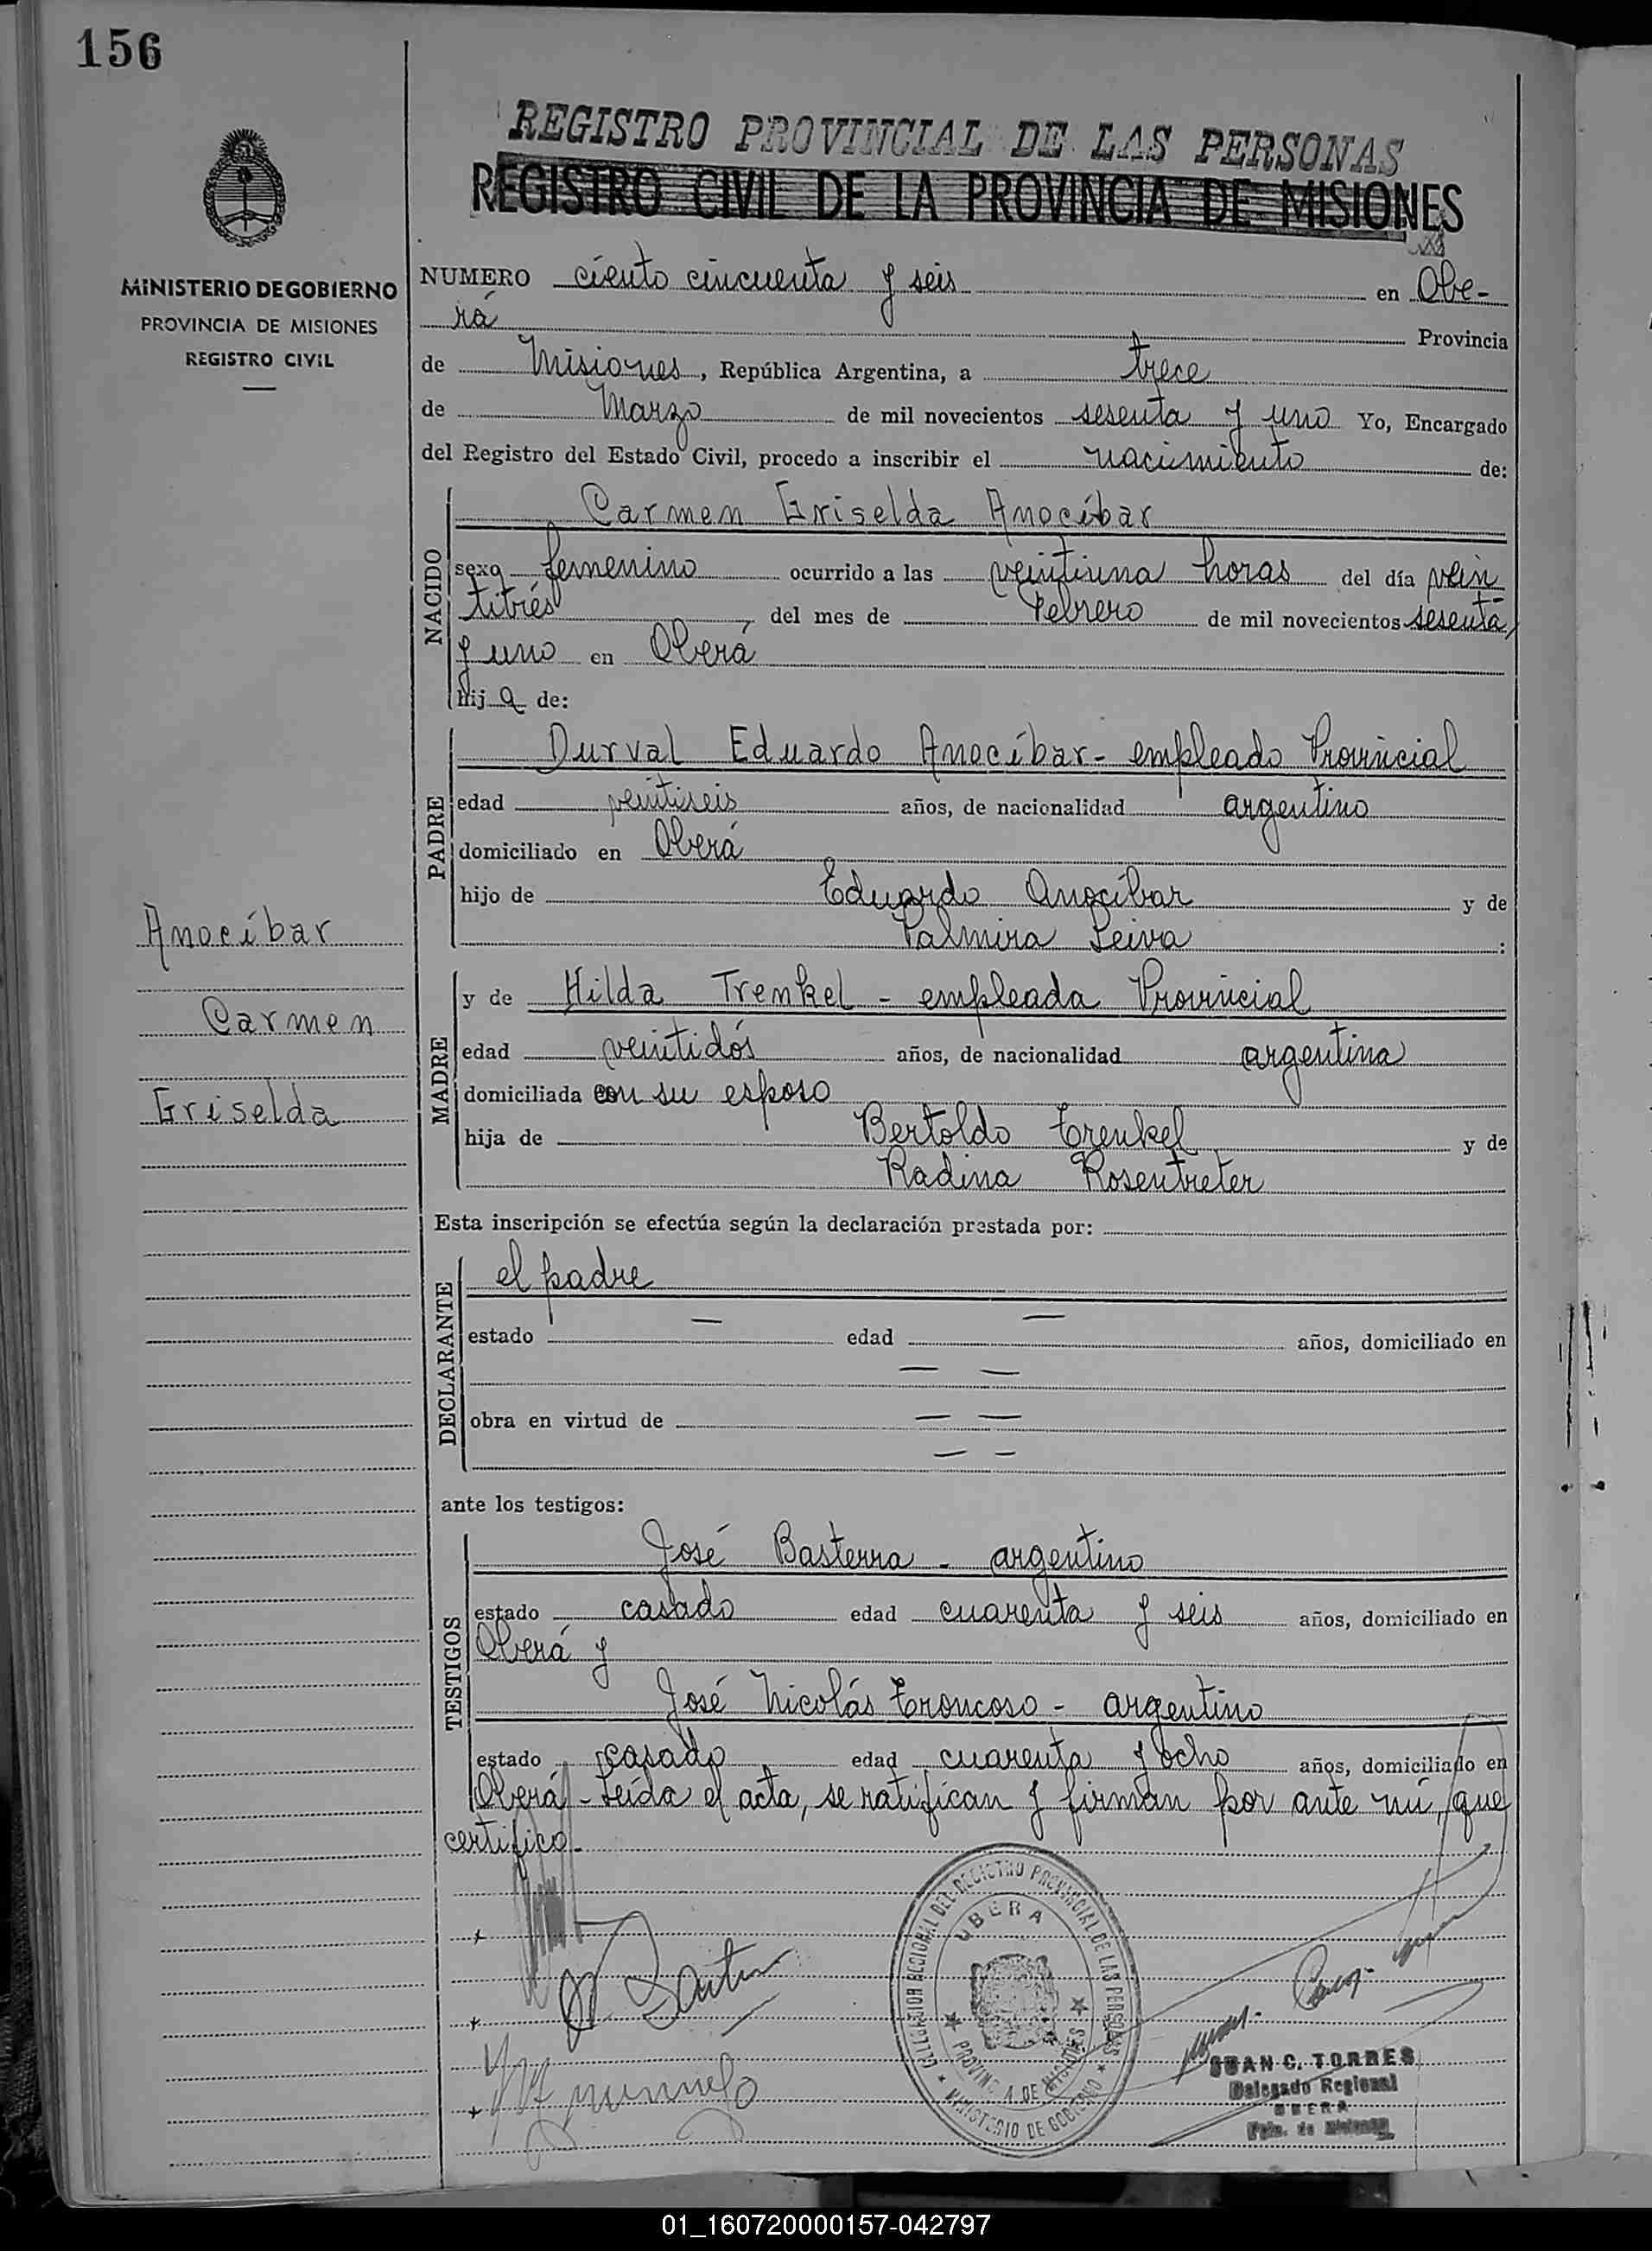 156
REGISTRO PROVINCIAL DE LAS PERSONAS
REGISTRO CIVIL DE LA PROVINCIA DE MISIONES
MINISTERIO DE GOBIERNO
PROVINCIA DE MISIONES
REGISTRO CIVIL
NUMERO ciento cincuenta y seis en Obe-
rá Provincia
de Misiones, República Argentina, a trece
de Marzo de mil novecientos sesenta y uno Yo, Encargado
del Registro del Estado Civil, procedo a inscribir el nacimiento de:
NACIDO
Carmen Griselda Anocíbar
sexo femenino ocurrido a las veintiuna horas del día vein
titrés del mes de Febrero de mil novecientos sesenta
y uno en Oberá
hij a de:
PADRE
Durval Eduardo Anocíbar - empleado Provincial
edad veintiseis años, de nacionalidad argentino
domiciliado en Oberá
hijo de Eduardo Anocíbar y de
Palmira Leiva :
Anocíbar
Carmen
Griselda
MADRE
y de Hilda Trenkel - empleada Provincial
edad veintidós años, de nacionalidad argentina
domiciliada con su esposo
hija de Bertoldo Trenkel y de
Radina Rosentreter
Esta inscripción se efectúa según la declaración prestada por:
DECLARANTE
el padre
estado — edad — años, domiciliado en
— —
obra en virtud de — —
— —
ante los testigos:
TESTIGOS
José Basterra - argentino
estado casado edad cuarenta y seis años, domiciliado en
Oberá y
José Nicolás Troncoso - argentino
estado casado edad cuarenta y ocho años, domiciliado en
Oberá - Leída el acta, se ratifican y firman por ante mí, que
certifico.
REGIONAL DEL REGISTRO PROVINCIAL DE LAS PERSONAS
OBERA
PROVINCIA DE MISIONES
MINISTERIO DE GOBIERNO
JUAN C. TORRES
Delegado Regional
OBERA
Pcia. de Misiones
01_160720000157-042797